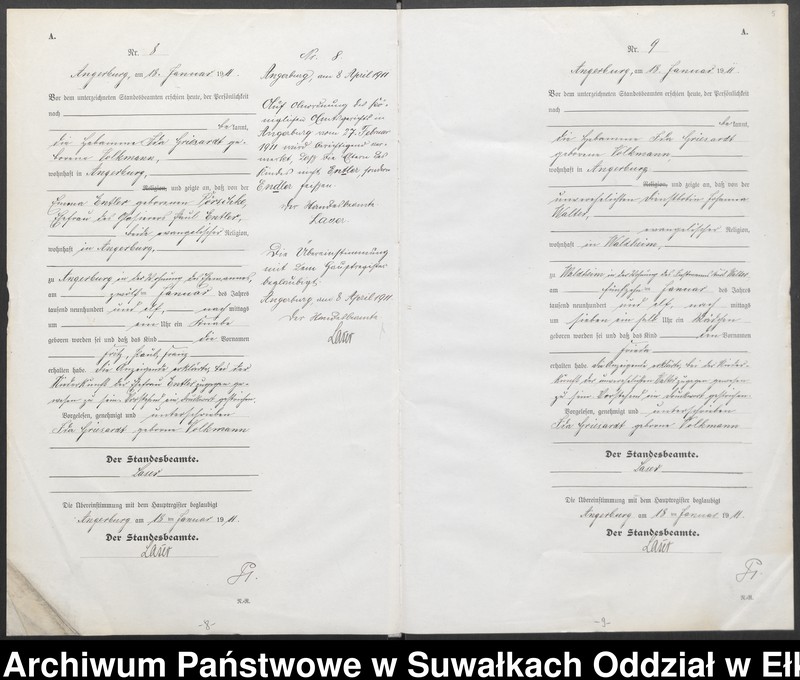 A.
Nr. 8
Angerburg, am 18. Januar 1911.
Vor dem unterzeichneten Standesbeamten erschien heute, der Persönlichkeit
nach
bekannt,
die Hebamme Ida Grisardt ge-
borene Volkmann,
wohnhaft in Angerburg,
Religion, und zeigte an, daß von der
Emma Entler geborenen
Ehefrau des Paul Entler,
beide evangelischer Religion,
wohnhaft in Angerburg,
zu Angerburg in der Wohnung des Ehemannes,
am zwölften Januar des Jahres
tausend neunhundert und elf, nach mittags
um ein Uhr ein Knabe
geboren worden sei und daß das Kind die Vornamen
Fritz, Paul, Franz
erhalten habe. Die Anzeigende erklärte, bei der
Niederkunft der Ehefrau Entler zugegen ge-
wesen zu sein. Vorstehend ein Druckwort gestrichen.
Vorgelesen, genehmigt und unterschrieben
Ida Grisardt geborene Volkmann
Der Standesbeamte.
Lauer
Die Übereinstimmung mit dem Hauptregister beglaubigt
Angerburg am 18ten Januar 1911.
Der Standesbeamte.
Lauer
N.-R.
-8-
Nr. 8.
Angerburg, am 8. April 1911
Auf Anordnung des Kö-
niglichen Amtsgerichts in
Angerburg vom 27. Februar
1911 wird berichtigend ver-
merkt, daß die Eltern des
Kindes nicht Entler, sondern
Endler heißen.
Der Standesbeamte
Lauer
Die Übereinstimmung
mit dem Hauptregister
beglaubigt.
Angerburg am 8. April 1911
Der Standesbeamte
Lauer
A.
Nr. 9
Angerburg, am 18. Januar 1911.
Vor dem unterzeichneten Standesbeamten erschien heute, der Persönlichkeit
nach
bekannt,
die Hebamme Ida Grisardt
geborene Volkmann,
wohnhaft in Angerburg
Religion, und zeigte an, daß von der
unverehelichten Dienstbotin Johanna
evangelischer Religion,
wohnhaft in Waldheim,
zu Waldheim in der Wohnung des
am fünfzehnten Januar des Jahres
tausend neunhundert und elf, nach mittags
um sieben ein halb Uhr ein Mädchen
geboren worden sei und daß das Kind den Vornamen
Frieda
erhalten habe. Die Anzeigende erklärte, bei der Nieder-
kunft der unverehelichten zugegen gewesen
zu sein. Vorstehend ein Druckwort gestrichen.
Vorgelesen, genehmigt und unterschrieben
Ida Grisardt geborene Volkmann
Der Standesbeamte.
Lauer
Die Übereinstimmung mit dem Hauptregister beglaubigt
Angerburg am 18ten Januar 1911.
Der Standesbeamte.
Lauer
N.-R.
-9-
Archiwum Państwowe w Suwałkach Oddział w Ełk